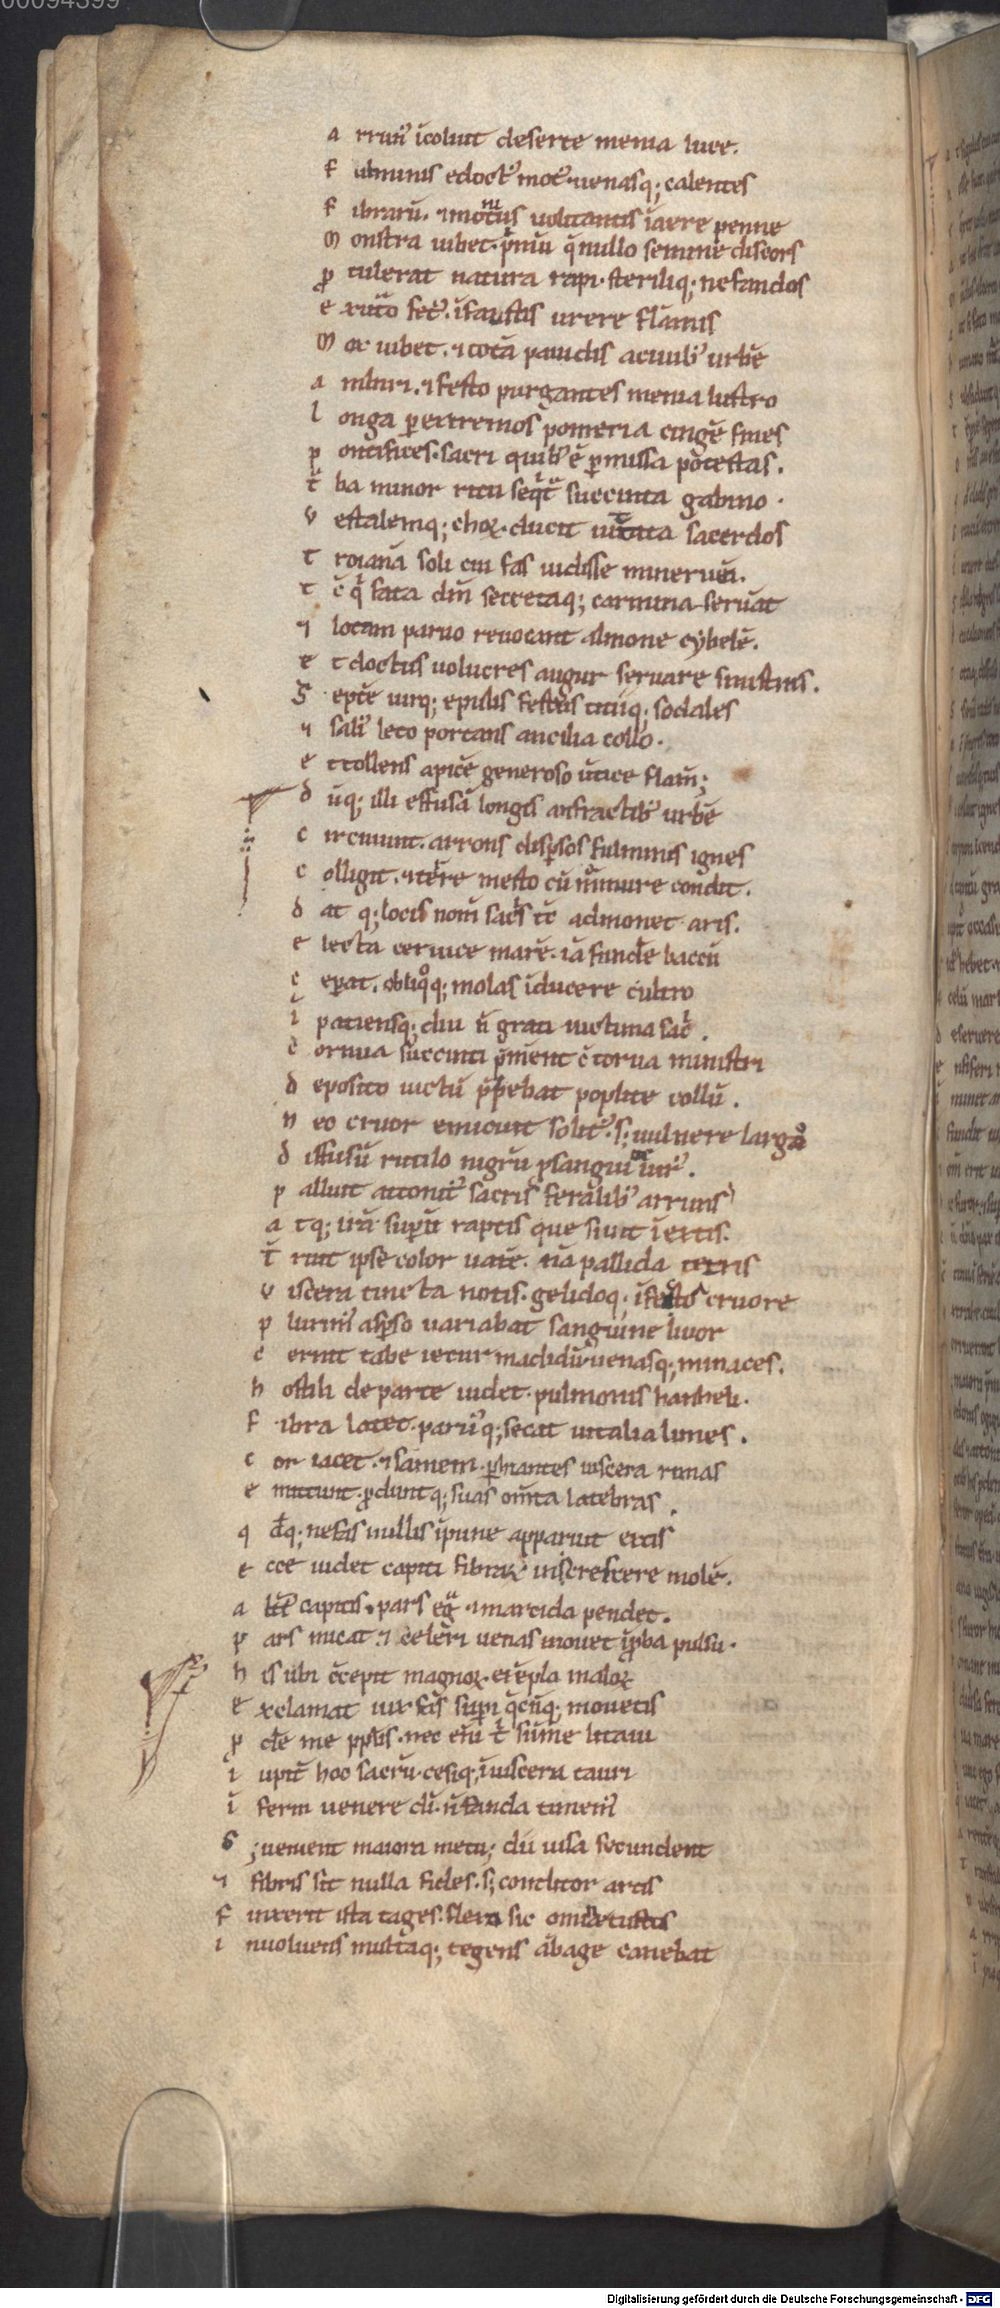 00094399
a rruns̉ īcoluit deserte menia luce.
f ulminis edoct᷒ mot᷒. uenasq; calentes
f ibrarū. ⁊ monitus uolitantis īaere penne
M onstra iubet. p̄mū q̄ nullo semine discors
p tulerat natura rapi. steriliq; nefandos
e x utō fet᷒. īfaustis urere flāmis
M ox iubet. ⁊ totā pauidis a ciuib᷒ urbē
a mbiri. ⁊ festo purgantes menia lustro
l onga p extremos pomeria cingē fines
p ontifices. sacri quib᷒ ē p̄missa potestas.
t̄ ba minor ritu seqͥt᷒ succincta gabino.
v estalemq; choꝝ. ducit uittata sacerdos
t roianā soli cui fas uidisse mineruā.
t c̄ q̄ fata dm̄ secretaq; carmina seruāt
⁊ lotam paruo reuocant almone cybelē.
e t doctus uolucres augur seruare sinistras.
S eptē uirq; epulis festus titiiq; sodales
⁊ sali᷒ leto portans ancilia collo.
e t tollens apicē generoso ūtice flam̄;
d ūq; illi effusā longis anfractib᷒ urbē
c ircuiunt. arrons dispsos fulminis ignes
c olligit. ⁊ tēre mesto cū m̄mure condit.
d at q; locis nom̄ sacͥs tc̄ admonet aris.
e lecta ceruice marē. iā fundē baccū
c epat. obliqͦq; molas īducere cultro
ī patiensq; diu n̄ grati uictima sacͥ.
c ornua succincti p̄ment c̄ torua ministri
d eposito uictū p̄bebat poplite collū.
n eo cruor emicuit solit᷒. s; uulnere largo
d iffusū rutilo nigrū p sanguine uir᷒.
p alluit attonit᷒ sacris feralib᷒ arruns
a tq; irā supū raptis quesiuit ī extis.
t̄ ruit ipse color uatē. nā pallida tetris
v iscera tincta notis. gelidoq; īfecto cruore
p lurim᷒ aspso uariabat sanguine liuor
c ernit tabe iecur madidū. uenasq; minaces.
h ostili de parte uidet. pulmonis hanheli.
f ibra latet. paru᷒q; secat uitalia limes.
c or iacet. ⁊ saniem. p hiantes uiscera rimas
e mittunt. pduntq; suas omīta latebras.
q dq; nefas nullis īpune apparuit extis
e cce uidet capiti fibraꝝ inscrescere molē.
a ltī capitis. pars eg̃ ⁊ marcida pendet.
p ars micat. ⁊ celeri uenas mouet īproba pulsu.
h is ubi c̄cepit magnoꝝ. exēpla maloꝝ
e xclamat uix fas supi q̄cūq; mouetis
p dē me pplis. nec eñ t̄ sūme litaui
i upit̄ hoc sacrū. cesiq; īuiscera tauri
ī ferni uenere di. n̄ fanda timem᷒
S ; uenient maiora metu; dii uisa secundent
⁊ fibris sit nulla fides. s; conditor artis
f inxerit ista tages. flexa sic omīa tuscus
i nuoluens multāq; tegens ābage canebat
Digitalisierung gefördert durch die Deutsche Forschungsgemeinschaft - DFG